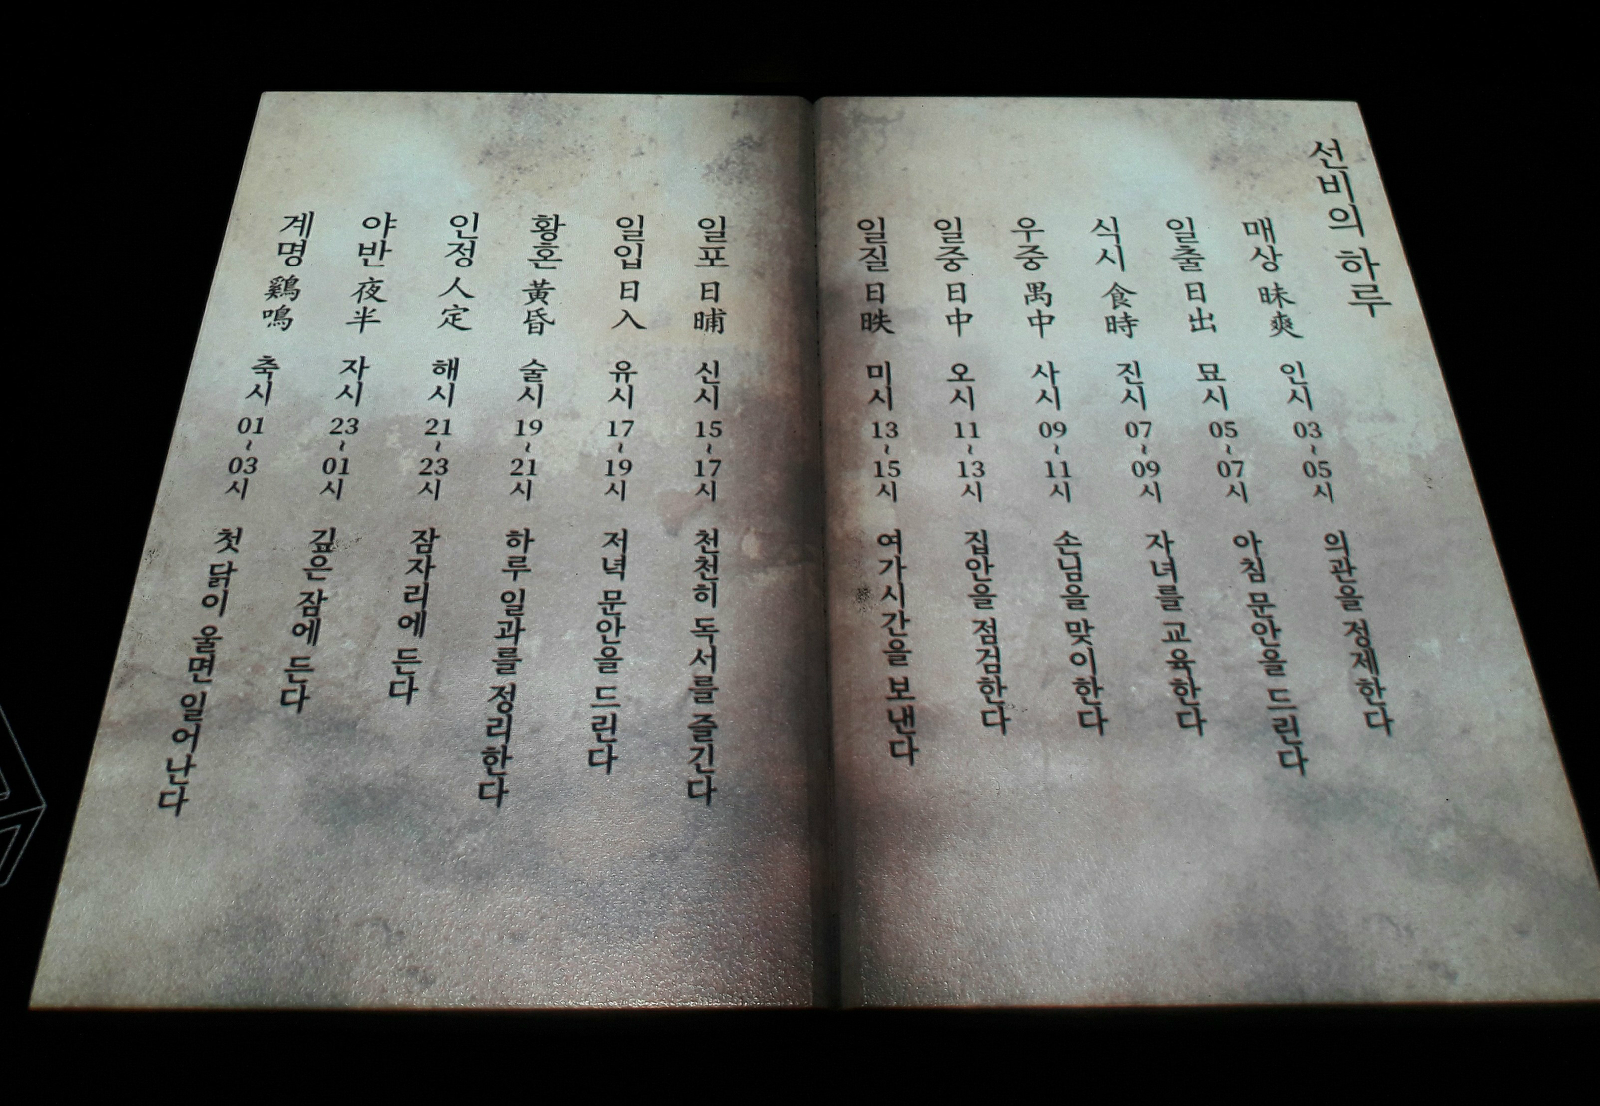 선비의 하루
매상 昧爽 인시 03~05시 의관을 정제한다
일출 日出 묘시 05~07시 아침 문안을 드린다
식시 食時 진시 07~09시 자녀를 교육한다
우중 禺中 사시 09~11시 손님을 맞이한다
일중 日中 오시 11~13시 집안을 점검한다
일질 日昳 미시 13~15시 여가시간을 보낸다
일포 日晡 신시 15~17시 천천히 독서를 즐긴다
일입 日入 유시 17~19시 저녁 문안을 드린다
황혼 黃昏 술시 19~21시 하루 일과를 정리한다
인정 人定 해시 21~23시 잠자리에 든다
야반 夜半 자시 23~01시 깊은 잠에 든다
계명 鷄鳴 축시 01~03시 첫 닭이 울면 일어난다